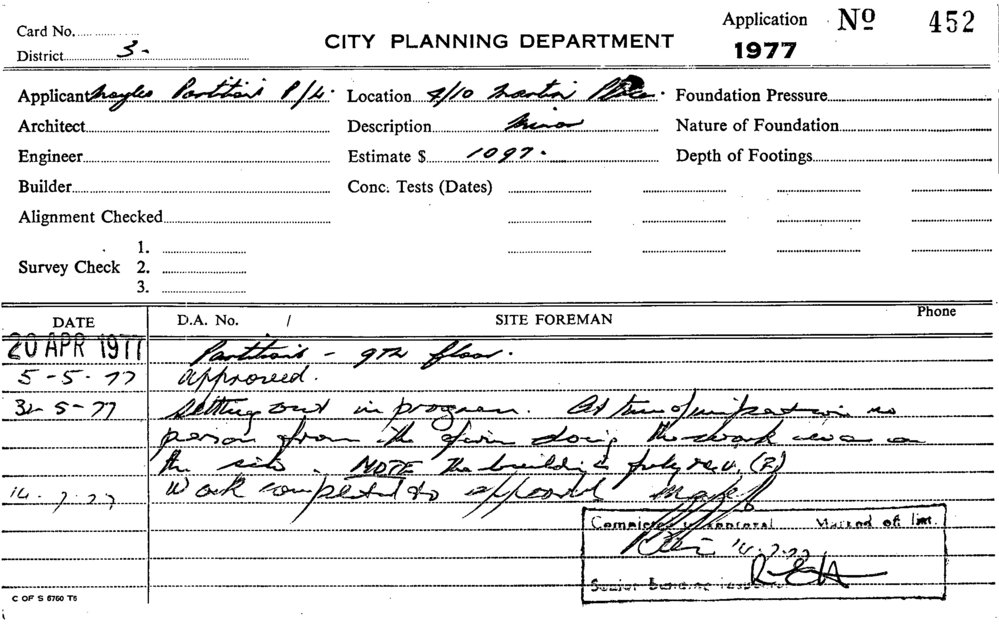 Card No.
District 3-
CITY PLANNING DEPARTMENT
Application Nº 452
1977
Applicant Partitions P/L.
Location 4/10 Martin Place.
Foundation Pressure
Architect
Description Minor
Nature of Foundation
Engineer
Estimate $ 1097.
Depth of Footings
Builder
Conc. Tests (Dates)
Alignment Checked
Survey Check 1.
2.
3.
DATE D.A. No. / SITE FOREMAN Phone
20 APR 1977 Partitions - 9th floor.
5-5-77 Approved.
5-77 Setting out in progress. At time of inspection no
person from the firm doing the work was on
the site. NOTE The building is fully
14.7.77 Work completed to approval
Completed to approval Marked off list.
14.7.77
Senior Building Inspector
C OF S 6760 T5